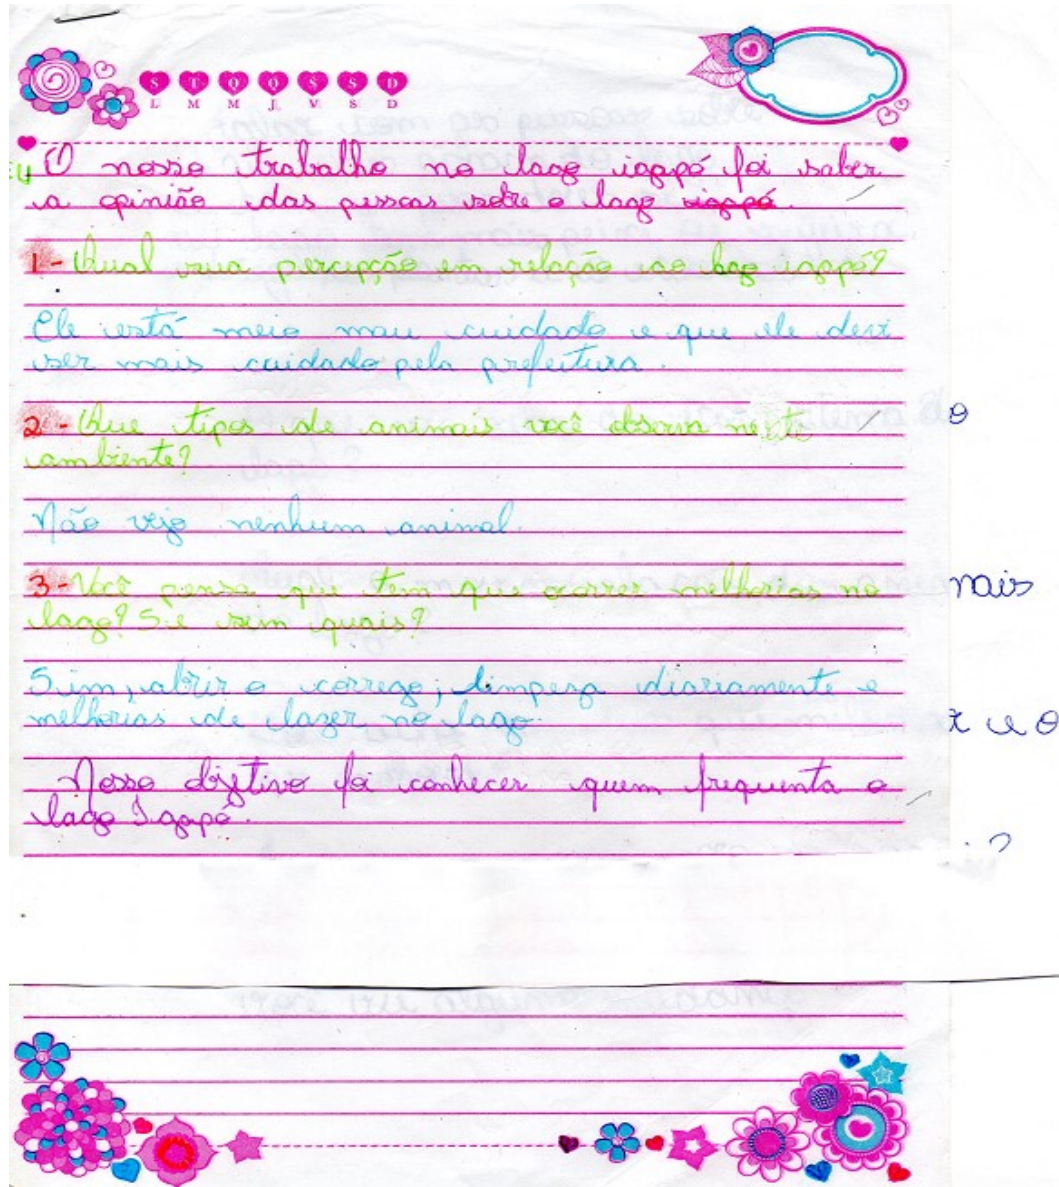 S T Q Q S S D
L M M J V S D
E4 O nosso trabalho no lago igapó foi saber
a opinião das pessoas sobre o lago igapó.
1- Qual sua percepção em relação ao lago igapó?
Ele está meio mau cuidado e que ele devi
ser mais cuidado pela prefeitura.
2- Que tipos de animais você observa neste
ambiente?
Não vejo nenhum animal.
3- Você pensa que tem que ocorrer melhorias no
lago? Se sim quais?
mais
Sim, abrir o corrego, limpeza diariamente e
melhorias de lazer no lago.
Nosso objetivo foi conhecer quem frequenta o
lago Igapó.